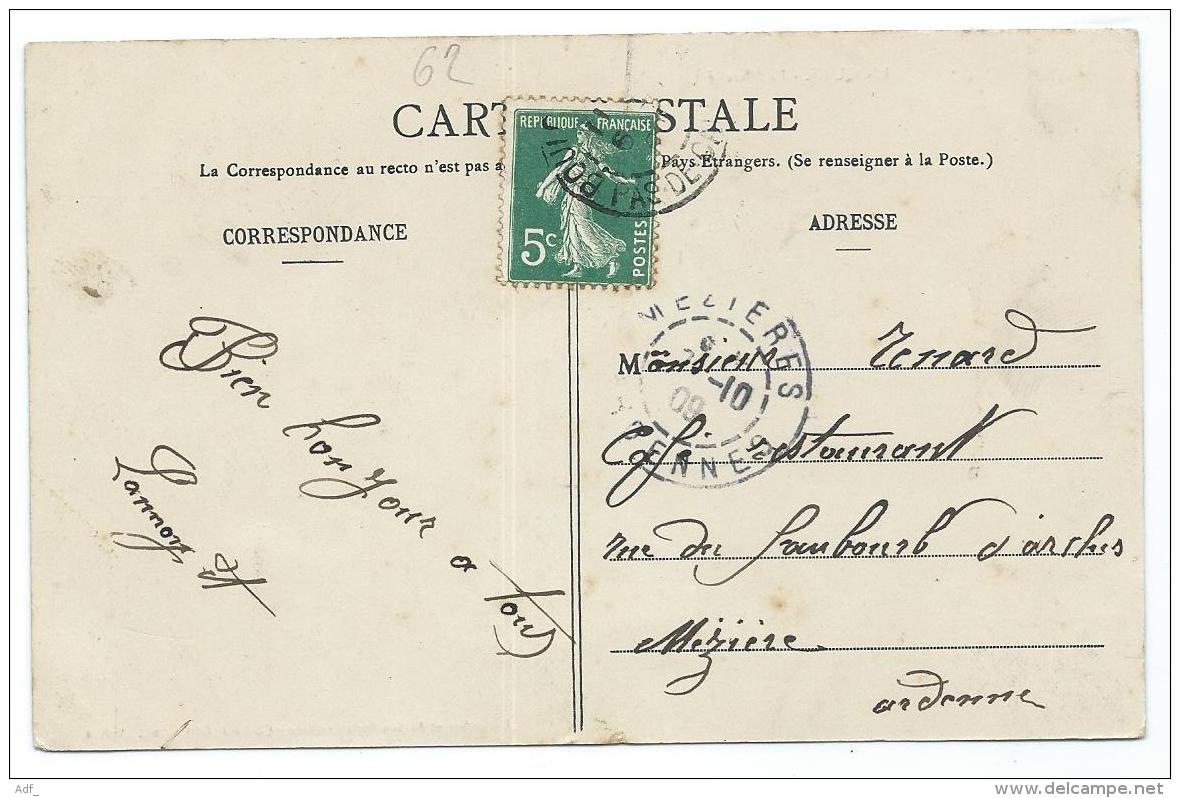 62
CARTE POSTALE
La Correspondance au recto n'est pas a Pays Etrangers. (Se renseigner à la Poste.)
REPUBLIQUE FRANÇAISE
5c
POSTES
PAS-DE-
CORRESPONDANCE
ADRESSE
Bien bonjour a tous
Lannoy A
MEZIERES
-10
09
Monsieur Renard
Café restaurant
rue du faubourb d'arches
Mézière
ardenne
Adf_